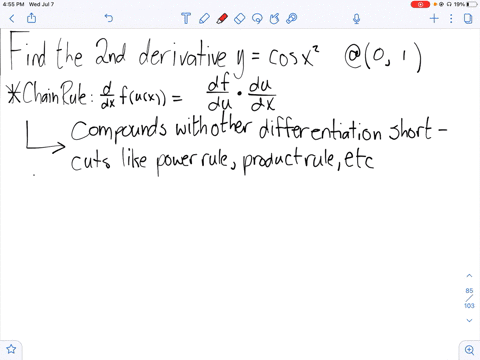 4:55 PM Wed Jul 7
19%
Find the 2nd derivative y = cos x² @ (0, 1)
*Chain Rule: d/dx f(u(x)) = df/du · du/dx
Compounds with other differentiation short-
cuts like power rule, product rule, etc
85
/
103